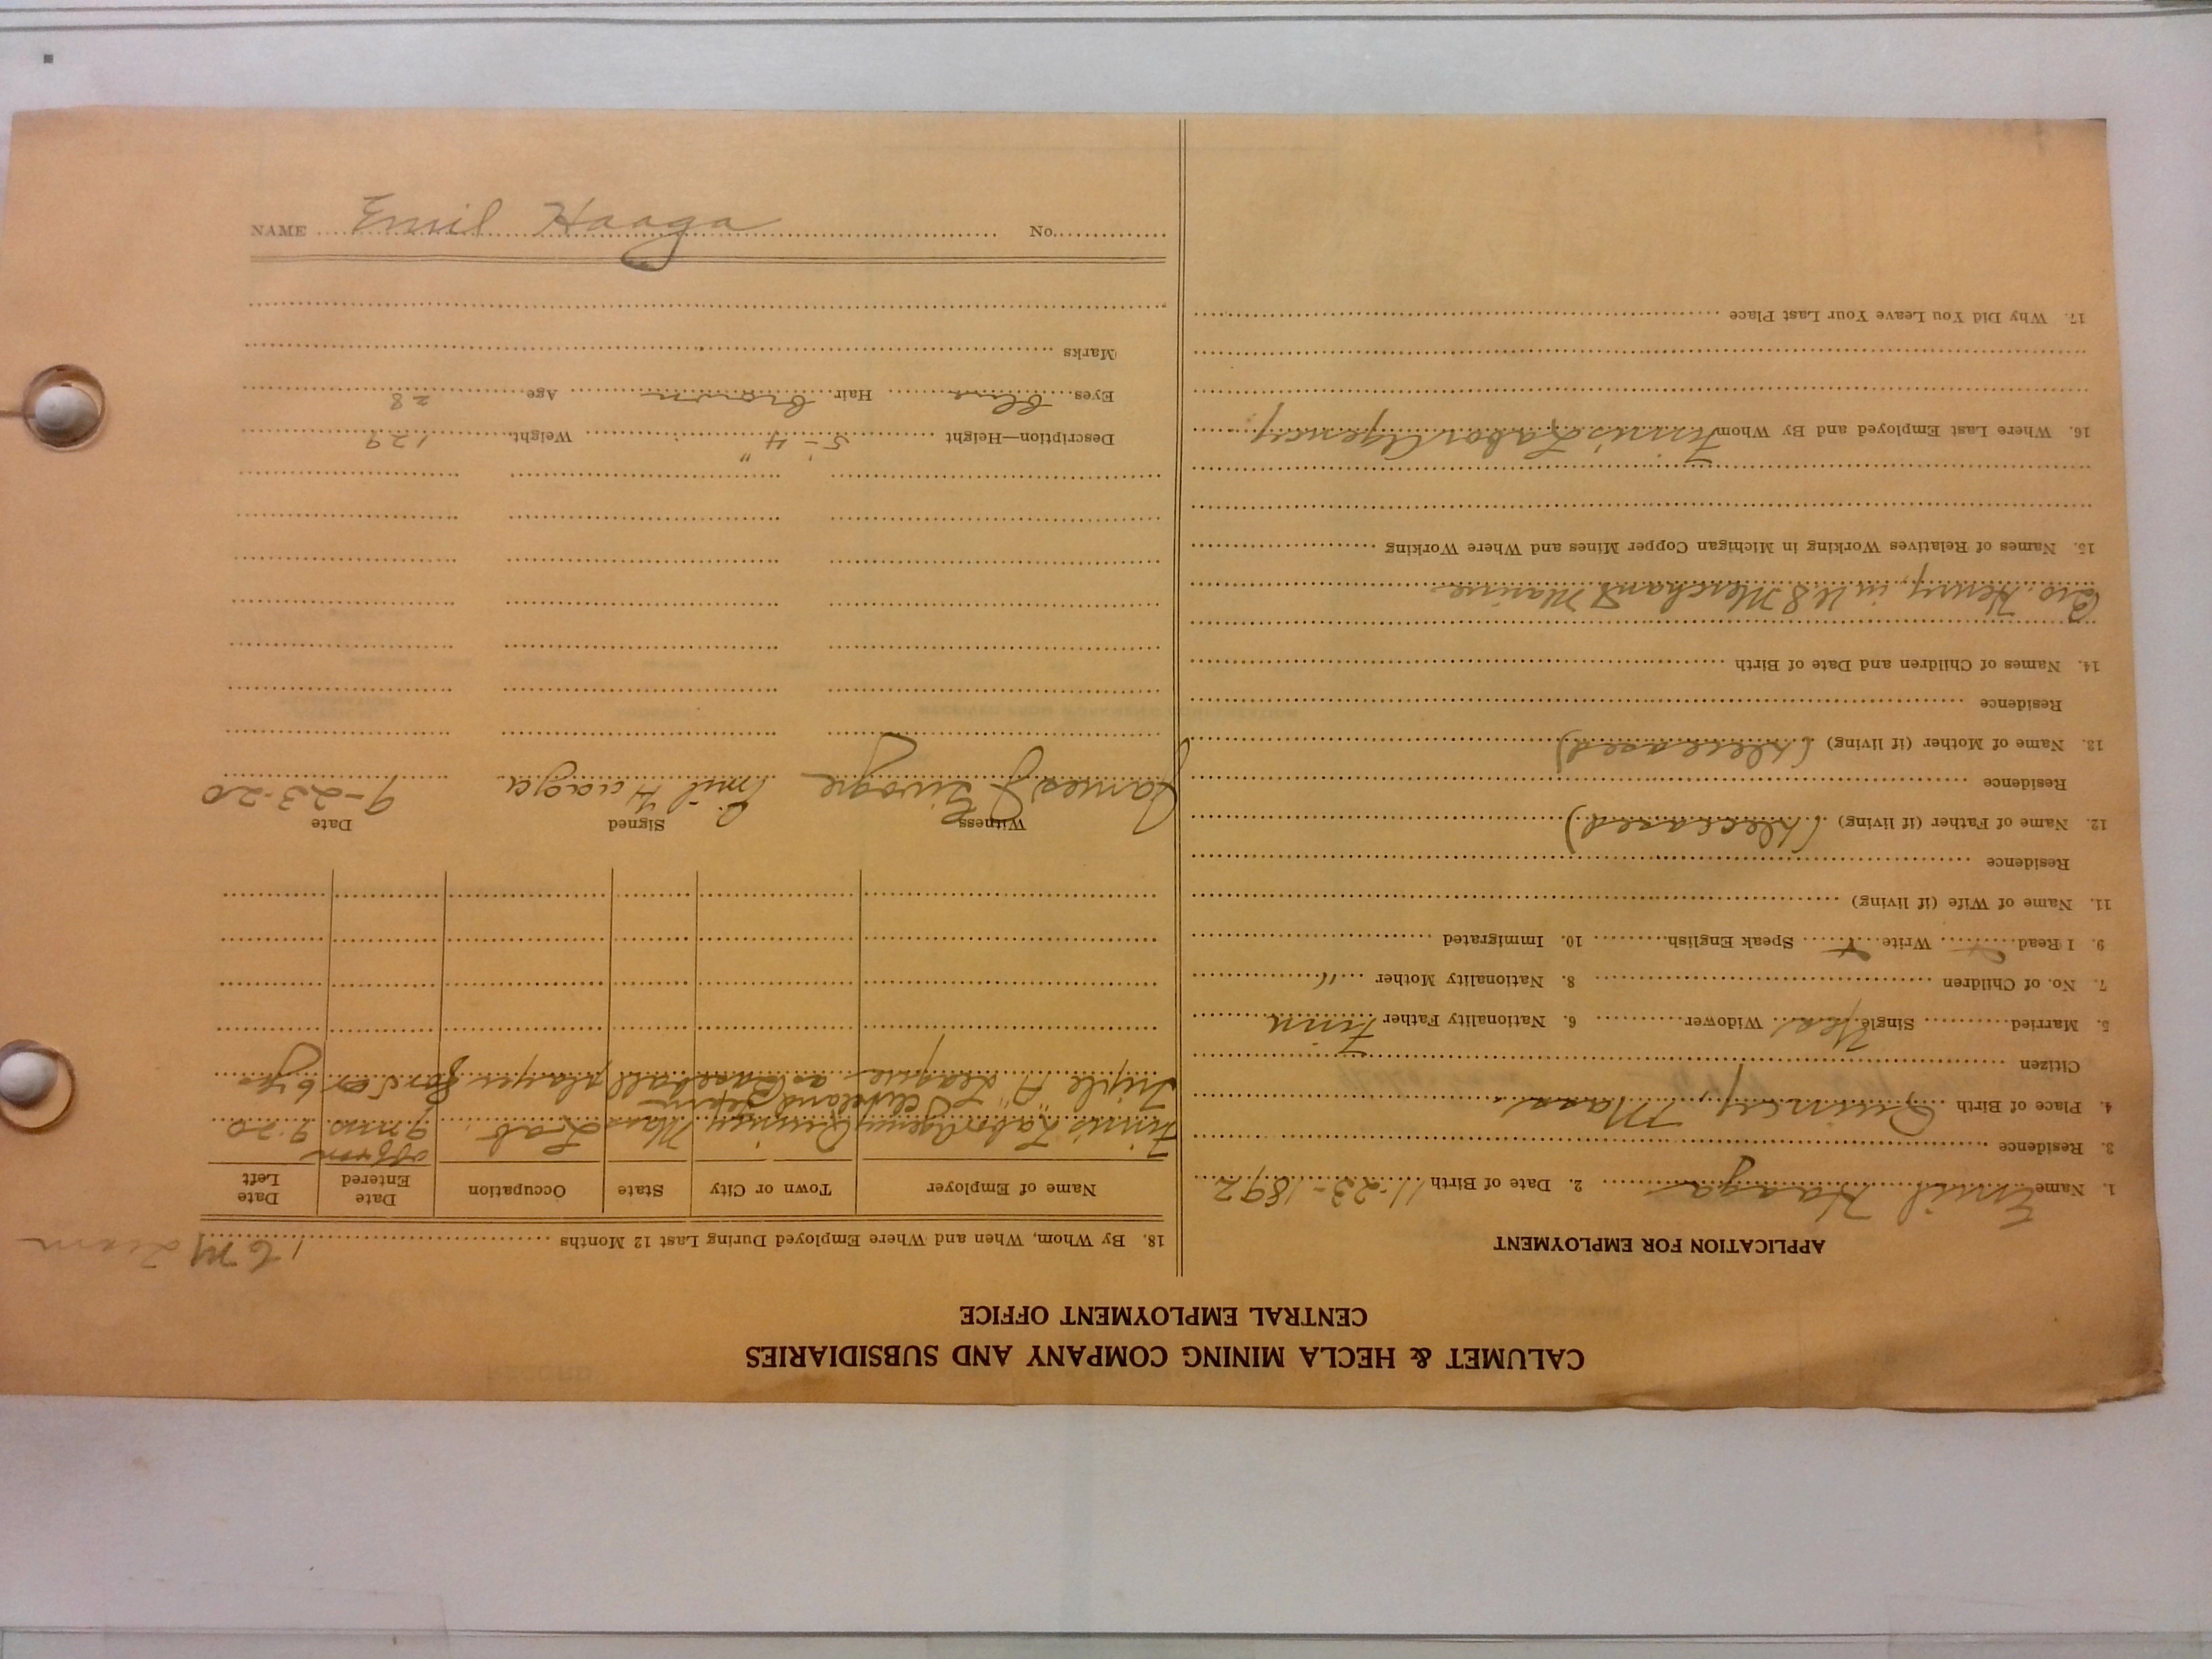 CALUMET & HECLA MINING COMPANY AND SUBSIDIARIES
CENTRAL EMPLOYMENT OFFICE
APPLICATION FOR EMPLOYMENT
1. Name Emil Haaga 2. Date of Birth 11-23-1892
3. Residence
4. Place of Birth Quincy, Mass.
Citizen
5. Married Single Yes Widower 6. Nationality Father Finn
7. No. of Children 8. Nationality Mother "
9. I Read Write Speak English 10. Immigrated
11. Name of Wife (if living)
Residence
12. Name of Father (if living) (deceased)
Residence
13. Name of Mother (if living) (deceased)
Residence
14. Names of Children and Date of Birth
Bro. Henry, in U S Merchant Marine.
15. Names of Relatives Working in Michigan Copper Mines and Where Working
16. Where Last Employed and By Whom Finnis Labor Agency
17. Why Did You Leave Your Last Place
18. By Whom, When and Where Employed During Last 12 Months
Name of Employer Town or City State Occupation Date Entered Date Left
Finnis Labor Agency Quincy Mass Lab off & on 9 mos 9-20
Cleveland Team
Triple "A" League as Baseball player for 5 or 6 yrs
Witness Signed Date
James J Emil Haaga 9-23-20
Description—Height 5'-4" Weight 129
Eyes blue Hair brown Age 28
Marks
NAME Emil Haaga No.